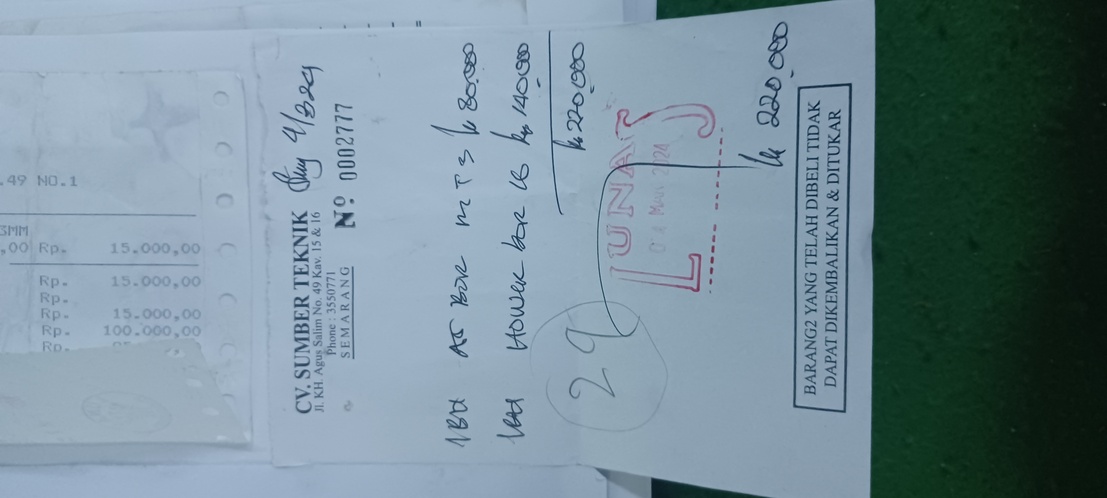 .49 NO.1
3MM
,00 Rp. 15.000,00
Rp. 15.000,00
Rp.
Rp. 15.000,00
Rp. 100.000,00
Rp.
CV. SUMBER TEKNIK
Jl. KH. Agus Salim No. 49 Kav. 15 & 16
Phone : 3550771
SEMARANG
Smg 4/3 24
Nº 0002777
1 BH AS BOR MT 3 Rp 80.000
1 BH HOWER BOR 16 Rp 140.000
Rp 220.000
29
LUNAS
2024
Rp 220.000
BARANG2 YANG TELAH DIBELI TIDAK
DAPAT DIKEMBALIKAN & DITUKAR